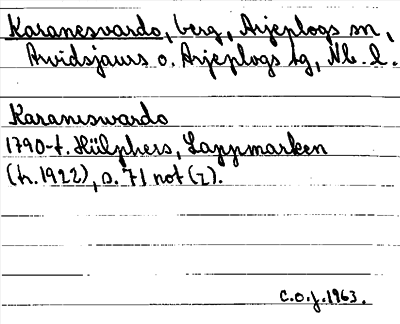 Karanesvardo, berg, Arjeplogs sn,
Arvidsjaurs o. Arjeplogs tg, Nb. l.
Karaneswardo
1790-t. Hülphers, Lappmarken
(h. 1922), s. 71 not (z).
C.O.J. 1963.